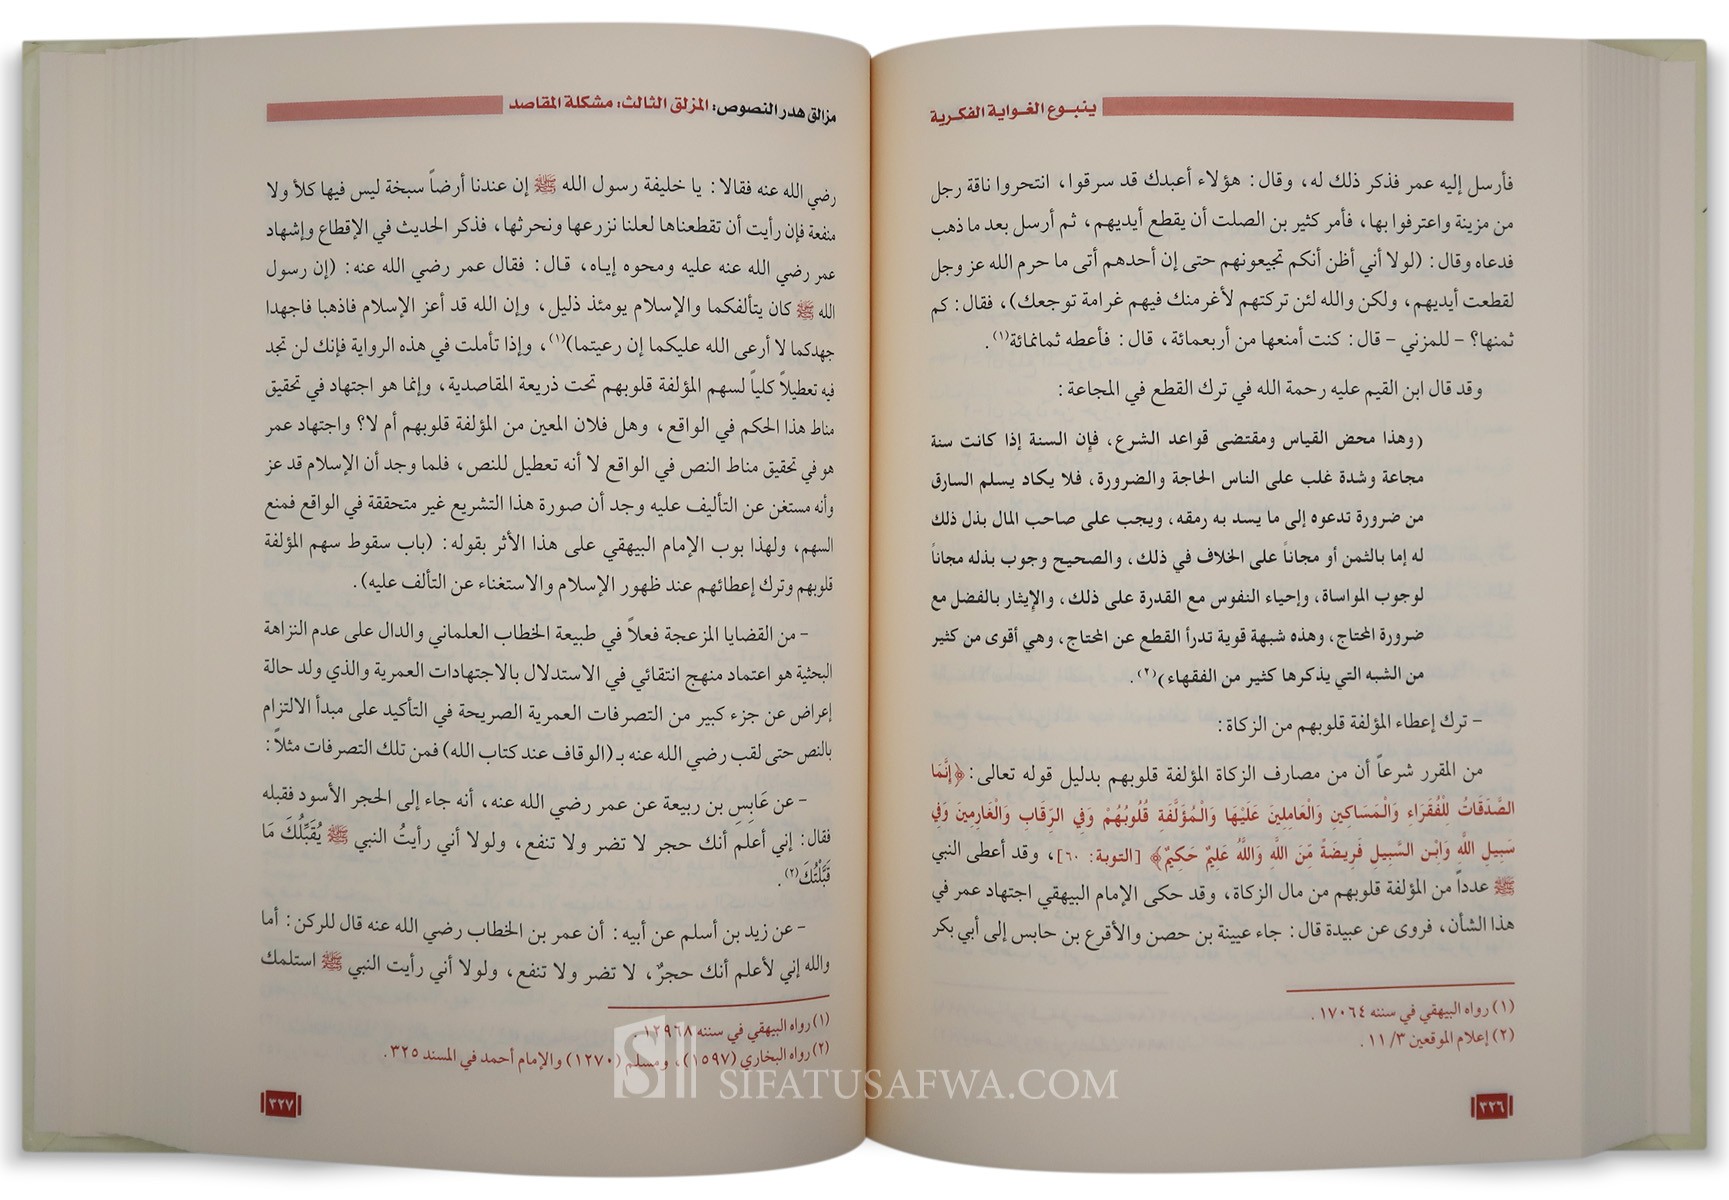 ينبوع الغواية الفكرية
فأرسل إليه عمر فذكر ذلك له، وقال: هؤلاء أعبدك قد سرقوا، انتحروا ناقة رجل
من مزينة واعترفوا بها، فأمر كثير بن الصلت أن يقطع أيديهم، ثم أرسل بعد ما ذهب
فدعاه وقال: (لولا أني أظن أنكم تجيعونهم حتى إن أحدهم أتى ما حرم الله عز وجل
لقطعت أيديهم، ولكن والله لئن تركتهم لأغرمنك فيهم غرامة توجعك)، فقال: كم
ثمنها؟ - للمزني - قال: كنت أمنعها من أربعمائة، قال: فأعطه ثمانمائة(١).
وقد قال ابن القيم عليه رحمة الله في ترك القطع في المجاعة:
(وهذا محض القياس ومقتضى قواعد الشرع، فإن السنة إذا كانت سنة
مجاعة وشدة غلب على الناس الحاجة والضرورة، فلا يكاد يسلم السارق
من ضرورة تدعوه إلى ما يسد به رمقه، ويجب على صاحب المال بذل ذلك
له إما بالثمن أو مجاناً على الخلاف في ذلك، والصحيح وجوب بذله مجاناً
لوجوب المواساة، وإحياء النفوس مع القدرة على ذلك، والإيثار بالفضل مع
ضرورة المحتاج، وهذه شبهة قوية تدرأ القطع عن المحتاج، وهي أقوى من كثير
من الشبه التي يذكرها كثير من الفقهاء)(٢).
- ترك إعطاء المؤلفة قلوبهم من الزكاة:
من المقرر شرعاً أن من مصارف الزكاة المؤلفة قلوبهم بدليل قوله تعالى: ﴿إِنَّمَا
الصَّدَقَاتُ لِلْفُقَرَاءِ وَالْمَسَاكِينِ وَالْعَامِلِينَ عَلَيْهَا وَالْمُؤَلَّفَةِ قُلُوبُهُمْ وَفِي الرِّقَابِ وَالْغَارِمِينَ وَفِي
سَبِيلِ اللَّهِ وَابْنِ السَّبِيلِ فَرِيضَةً مِّنَ اللَّهِ وَاللَّهُ عَلِيمٌ حَكِيمٌ﴾ [التوبة: ٦٠]، وقد أعطى النبي
ﷺ عدداً من المؤلفة قلوبهم من مال الزكاة، وقد حكى الإمام البيهقي اجتهاد عمر في
هذا الشأن، فروى عن عبيدة قال: جاء عيينة بن حصن والأقرع بن حابس إلى أبي بكر
(١) رواه البيهقي في سننه ١٧٠٦٤.
(٢) إعلام الموقعين ١١/٣.
٣٢٦
مزالق هدر النصوص: المزلق الثالث: مشكلة المقاصد
رضي الله عنه فقالا: يا خليفة رسول الله ﷺ إن عندنا أرضاً سبخة ليس فيها كلأ ولا
منفعة فإن رأيت أن تقطعناها لعلنا نزرعها ونحرثها، فذكر الحديث في الإقطاع وإشهاد
عمر رضي الله عنه عليه ومحوه إياه، قال: فقال عمر رضي الله عنه: (إن رسول
الله ﷺ كان يتألفكما والإسلام يومئذ ذليل، وإن الله قد أعز الإسلام فاذهبا فاجهدا
جهدكما لا أرعى الله عليكما إن رعيتما)(١)، وإذا تأملت في هذه الرواية فإنك لن تجد
فيه تعطيلاً كلياً لسهم المؤلفة قلوبهم تحت ذريعة المقاصدية، وإنما هو اجتهاد في تحقيق
مناط هذا الحكم في الواقع، وهل فلان المعين من المؤلفة قلوبهم أم لا؟ واجتهاد عمر
هو في تحقيق مناط النص في الواقع لا أنه تعطيل للنص، فلما وجد أن الإسلام قد عز
وأنه مستغن عن التأليف عليه وجد أن صورة هذا التشريع غير متحققة في الواقع فمنع
السهم، ولهذا بوب الإمام البيهقي على هذا الأثر بقوله: (باب سقوط سهم المؤلفة
قلوبهم وترك إعطائهم عند ظهور الإسلام والاستغناء عن التألف عليه).
- من القضايا المزعجة فعلاً في طبيعة الخطاب العلماني والدال على عدم النزاهة
البحثية هو اعتماد منهج انتقائي في الاستدلال بالاجتهادات العمرية والذي ولد حالة
إعراض عن جزء كبير من التصرفات العمرية الصريحة في التأكيد على مبدأ الالتزام
بالنص حتى لقب رضي الله عنه بـ (الوقاف عند كتاب الله) فمن تلك التصرفات مثلاً:
- عن عَابِسِ بن ربيعة عن عمر رضي الله عنه، أنه جاء إلى الحجر الأسود فقبله
فقال: إني أعلم أنك حجر لا تضر ولا تنفع، ولولا أني رأيتُ النبي ﷺ يُقَبِّلُكَ مَا
قَبَّلْتُكَ(٢).
- عن زيد بن أسلم عن أبيه: أن عمر بن الخطاب رضي الله عنه قال للركن: أما
والله إني لأعلم أنك حجرٌ، لا تضر ولا تنفع، ولولا أني رأيت النبي ﷺ استلمك
(١) رواه البيهقي في سننه ١٢٩٦٨.
(٢) رواه البخاري (١٥٩٧)، ومسلم (١٢٧٠) والإمام أحمد في المسند ٣٢٥.
٣٢٧
SIFATUSAFWA.COM